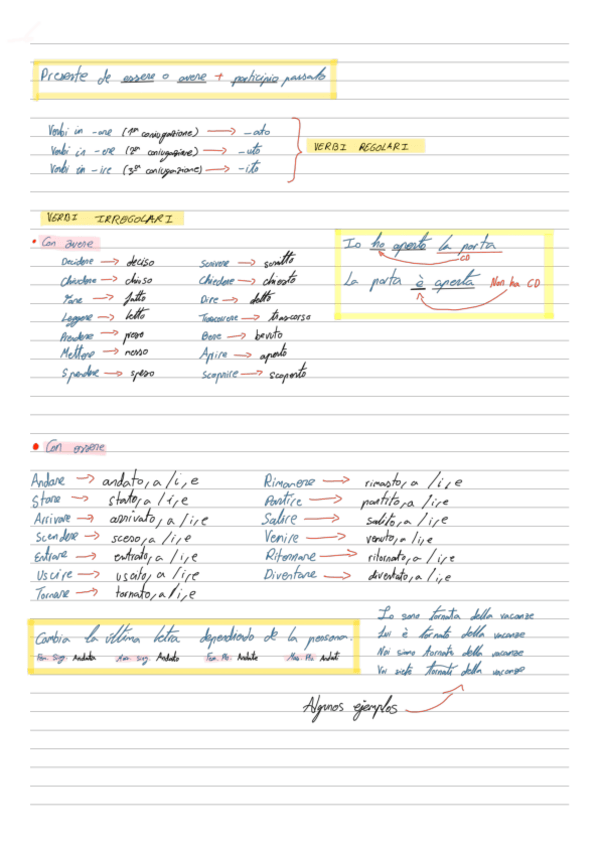 Presente de essere o avere + participio passato
Verbi in -are (1ª coniugazione) → -ato
Verbi in -ere (2ª coniugazione) → -uto
Verbi in -ire (3ª coniugazione) → -ito
VERBI REGOLARI
VERBI IRREGOLARI
• Con avere
Decidere → deciso
Chiudere → chiuso
Fare → fatto
Leggere → letto
Prendere → preso
Mettere → messo
Spendere → speso
Scrivere → scritto
Chiedere → chiesto
Dire → detto
Trascorrere → trascorso
Bere → bevuto
Aprire → aperto
Scoprire → scoperto
Io ho aperto la porta
CD
La porta è aperta Non ha CD
• Con essere
Andare → andato, a / i, e
Stare → stato, a / i, e
Arrivare → arrivato, a / i, e
Scendere → sceso, a / i, e
Entrare → entrato, a / i, e
Uscire → uscito, a / i, e
Tornare → tornato, a / i, e
Rimanere → rimasto, a / i, e
Partire → partito, a / i, e
Salire → salito, a / i, e
Venire → venuto, a / i, e
Ritornare → ritornato, a / i, e
Diventare → diventato, a / i, e
Cambia la última letra dependiendo de la persona.
Fem. Sing. Andata Mas. sing. Andato Fem. Pl. Andate Mas. Pl. Andati
Io sono tornata della vacanze
Lui è tornato della vacanze
Noi siamo tornate della vacanze
Voi siete tornati della vacanze
Algunos ejemplos